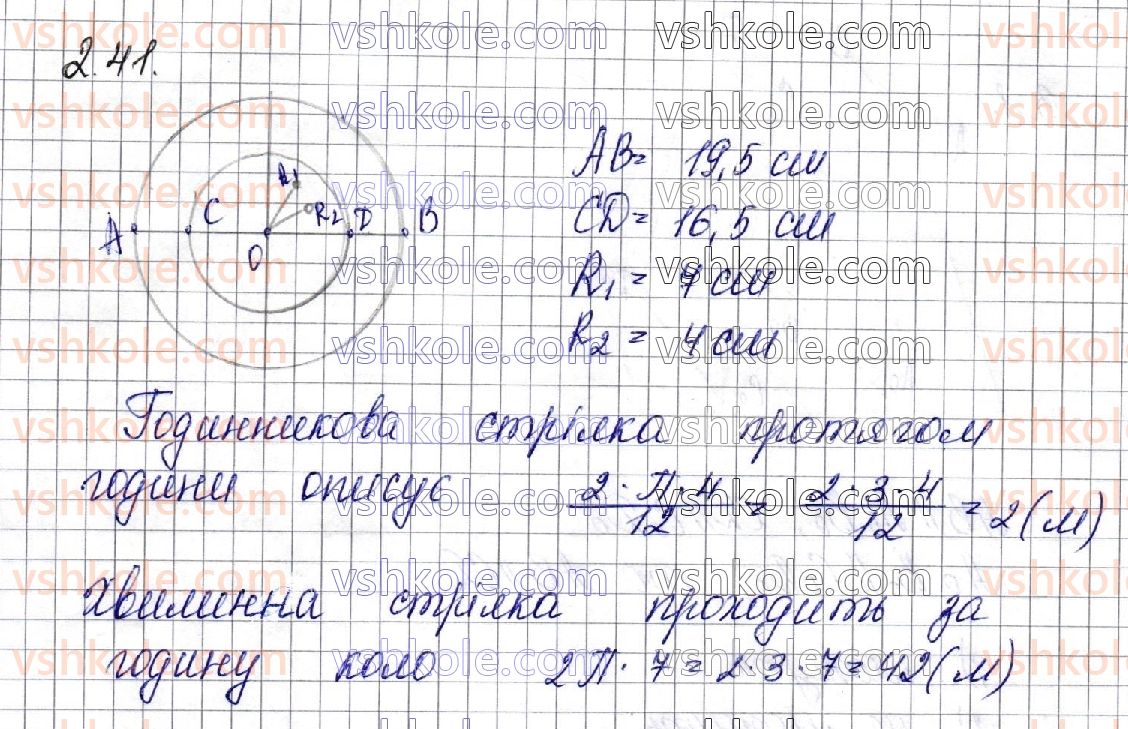 2.41.
A C O R1 R2 D B
AB = 19,5 см
CD = 16,5 см
R1 = 7 см
R2 = 4 см
Годинникова стрілка протягом
години описує 2·П·4/12 = 2·3·4/12 = 2(м)
Хвилинна стрілка проходить за
годину коло 2П·7=2·3·7=42(м)
vshkole.com